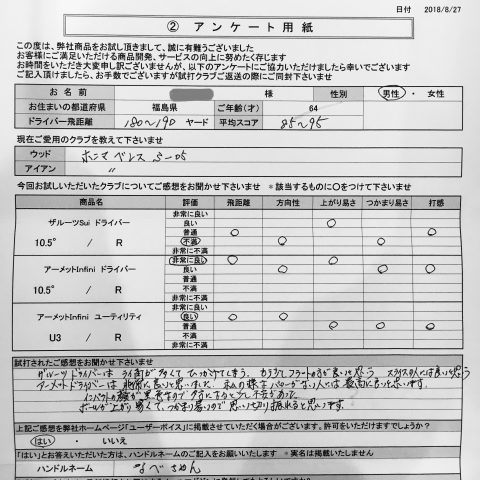 日付 2018/8/27
② アンケート用紙
この度は、弊社商品をお試し頂きまして、誠に有難うございました
お客様にご満足いただける商品開発、サービスの向上に努めたく存じます
お時間をいただき大変申し訳ございませんが、以下のアンケートにご協力いただけましたら幸いでございます
ご記入頂けましたら、お手数でございますが試打クラブご返送の際にご同封下さいませ
お 名 前 様 性別 男性 ・ 女性
お住まいの都道府県 福島県 ご年齢(才) 64
ドライバー飛距離 180〜190 ヤード 平均スコア 85〜95
現在ご愛用のクラブを教えて下さいませ
ウッド ホンマ ベレス S-05
アイアン 〃
今回お試しいただいたクラブについてご感想をお聞かせ下さいませ *該当するものに〇をつけて下さいませ
商品名 評価 飛距離 方向性 上がり易さ つかまり易さ 打感
ザルーツSui ドライバー
10.5° / R
非常に良い
良い
普通
不満
非常に不満
アーメットInfini ドライバー
10.5° / R
非常に良い
良い
普通
不満
非常に不満
アーメットInfini ユーティリティ
U3 / R
非常に良い
良い
普通
不満
非常に不満
試打されたご感想をお聞かせ下さいませ
ザルーツドライバーは ライ角が 多くて ひっかけてしまう。 もう少し フラットの方が良いと思う スライスの人には良いと思う
アーメットドライバーは 非常に良いと思いました 私の様な パワーがない人には 最高に良いと思います。
インパクトの 少し不安があった
ボールが上がり易くて、つかまり易いので 思いっきり振れると思います。
上記ご感想を弊社ホームページ「ユーザーボイス」に掲載させていただく場合がございます。許可をいただけますでしょうか?
はい ・ いいえ
「はい」とお答えいただいた方は、ハンドルネームのご記入をお願いいたします *実名は掲載いたしません
ハンドルネーム なべちゃん